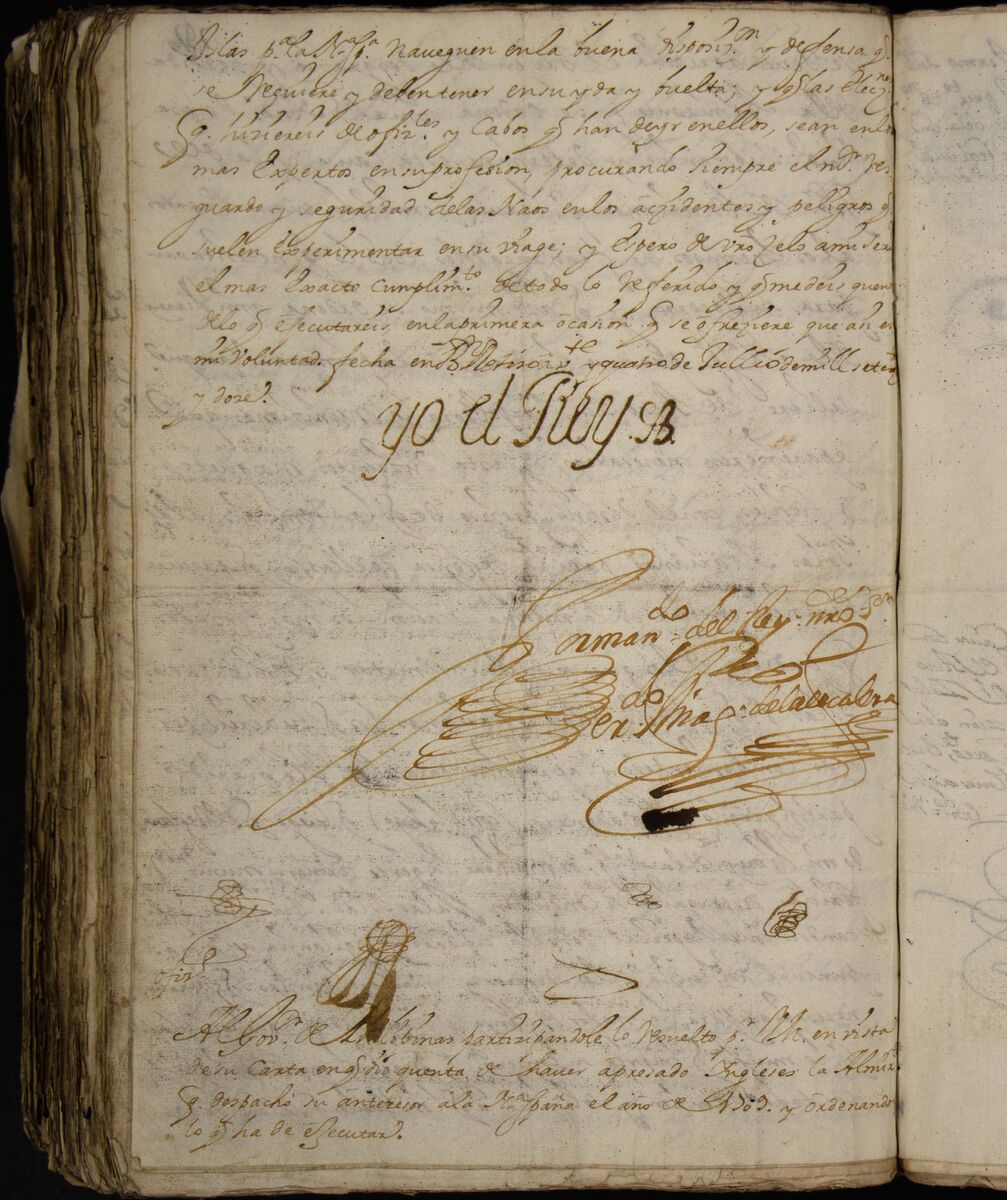 Islas p.ª la N.ª esp.ª naueguen en la buena disposiz.on y defensa q.
se Requiere y deben tener en su yda y buelta; y q las elecz.nes
q. hiziereis de ofiz.les y Cabos q han de yr en ellos, sean en los
mas Expertos en su profesion, procurando siempre el m.r res
guardo y seguridad de las Naos en los aczidentes y peligros q
suelen Experimentar en su viage; y espero de vro zelo a mi seru.
el mas exacto cumplim.to de todo lo referido y q me deis quenta
de lo q executareis, en la primera ocasion q se ofreziere que asi es
mi Voluntad. fecha en B.n Retiro a y quatro de Jullio de mill setez.
y doze.
yo el Rey
Por man.do del Rey nro S.or
de la
Ofiz.o
Al Gov.r de Philipinas partizipandole lo resuelto p.r V.M. en vista
de su Carta en q dio quenta de hauer apresado Ingleses la Almir.ta
q. despachó su antezesor a la N.ª españa el año de 1709. y ordenando
lo q ha de executar.